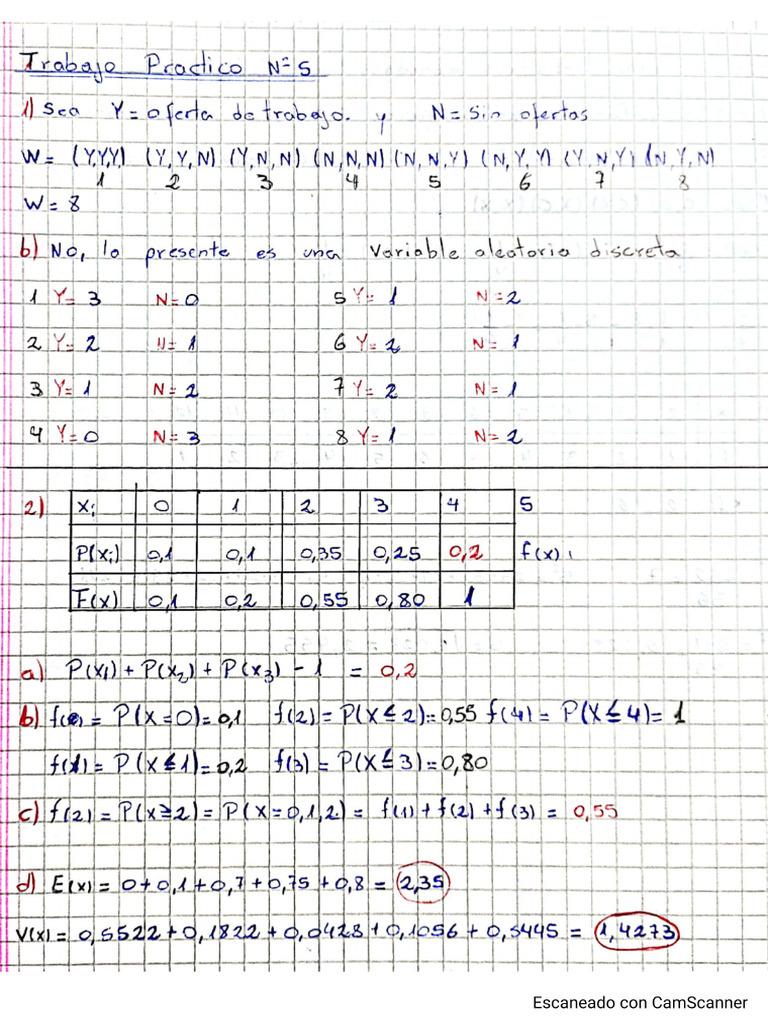 Trabajo Practico Nº 5
1) Sea Y= oferta de trabajo. y N= Sin ofertas
W= (Y,Y,Y) (Y,Y,N) (Y,N,N) (N,N,N) (N,N,Y) (N,Y,Y) (Y,N,Y) (N,Y,N)
1 2 3 4 5 6 7 8
W= 8
b) No, lo presente es una variable aleatoria discreta
1 Y= 3 N= 0 5 Y= 1 N= 2
2 Y= 2 N= 1 6 Y= 2 N= 1
3 Y= 1 N= 2 7 Y= 2 N= 1
4 Y= 0 N= 3 8 Y= 1 N= 2
2) Xi 0 1 2 3 4 5
P(xi) 0,1 0,1 0,35 0,25 0,2 f(x)
F(x) 0,1 0,2 0,55 0,80 1
a) P(x1) + P(x2) + P(x3) - 1 = 0,2
b) f(0) = P(X=0)=0,1 f(2)= P(X≤2)=0,55 f(4)= P(X≤4)= 1
f(1)= P(X≤1)=0,2 f(3)= P(X≤3)=0,80
c) f(2)= P(x≥2)= P(X=0,1,2)= f(1)+f(2)+f(3) = 0,55
d) E(x) = 0+0,1+0,7+0,75+0,8= 2,35
V(x)= 0,5522+0,1822+0,0428+0,1056+0,5445= 1,4273
Escaneado con CamScanner